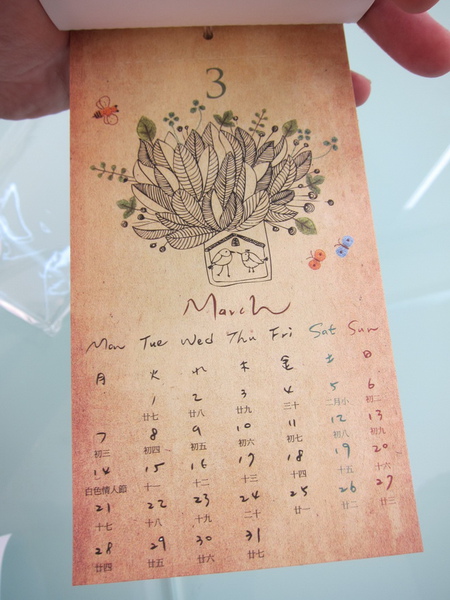 3
March
Mon Tue Wed Thu Fri Sat Sun
月 火 水 木 金 土 日
1 2 3 4 5 6
廿七 廿八 廿九 三十 二月小 初二
7 8 9 10 11 12 13
初三 初四 初五 初六 初七 初八 初九
14 15 16 17 18 19 20
白色情人節 十一 十二 十三 十四 十五 十六
21 22 23 24 25 26 27
十七 十八 十九 二十 廿一 廿二 廿三
28 29 30 31
廿四 廿五 廿六 廿七